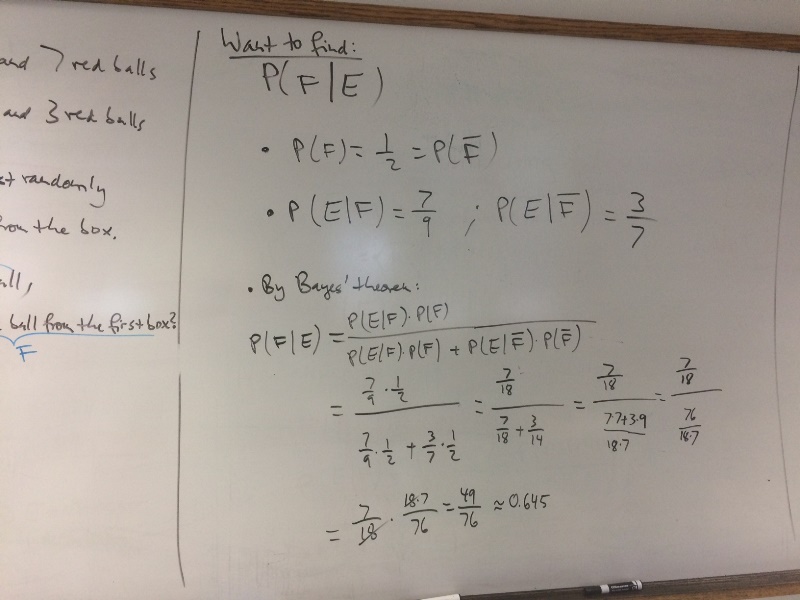 and 7 red balls
and 3 red balls
randomly
from the box.
ball from the first box?
F
Want to find:
P(F|E)
• P(F) = 1/2 = P(F̅)
• P(E|F) = 7/9 ; P(E|F̅) = 3/7
• By Bayes' theorem:
P(F|E) = P(E|F)·P(F) / P(E|F)·P(F) + P(E|F̅)·P(F̅)
= 7/9 · 1/2 / 7/9 · 1/2 + 3/7 · 1/2 = 7/18 / 7/18 + 3/14 = 7/18 / 7·7+3·9/18·7 = 7/18 / 76/18·7
= 7/18 · 18·7/76 = 49/76 ≈ 0.645